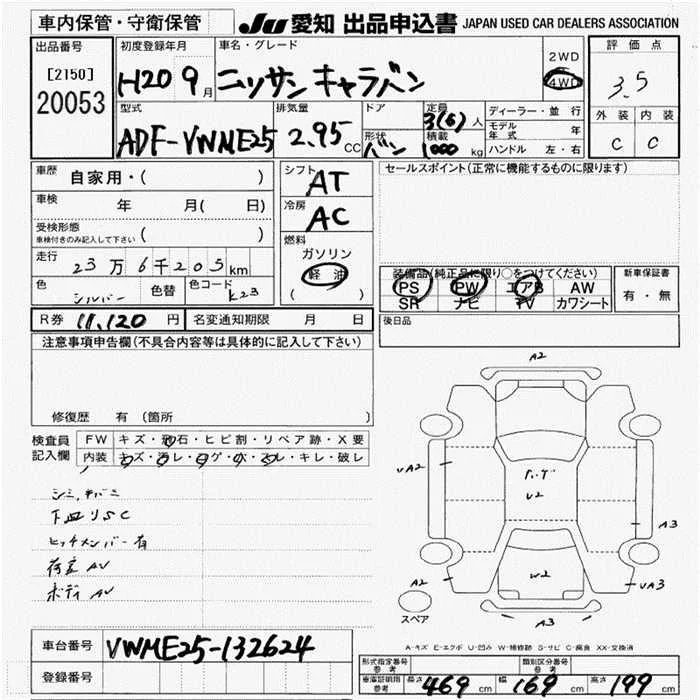 車内保管・守衛保管
JU 愛知 出品申込書 JAPAN USED CAR DEALERS ASSOCIATION
出品番号
[2150]
20053
初度登録年月
H20 9月
車名・グレード
ニッサンキャラバン
2WD
4WD
評価点
3.5
外装 内装
C C
型式
ADF-VWME25
排気量
2.95cc
ドア
形状
バン
定員
3(6)人
積載
1000kg
ディーラー・並行
モデル年式 年
ハンドル 左・右
車歴 自家用・( )
車検 年 月( 日)
受検形態
車検付きのみ記入して下さい ( )
走行 23万6千205km
色 シルバー 色替 色コード K23
シフト
AT
冷房
AC
燃料
ガソリン
軽油
( )
セールスポイント(正常に機能するものに限ります)
装備品(純正品に限り○をつけてください)
PS PW エアB AW
SR ナビ TV カワシート
新車保証書
有・無
R券 11,120円 名変通知期限 月 日
後日品
注意事項申告欄(不具合内容等は具体的に記入して下さい)
修復歴 有 (箇所
検査員
記入欄
FW キズ・飛石・ヒビ割・リペア跡・X要
内装 キズ・汚レ・コゲ・穴・スレ・キレ・破レ
下皿リSC
ヒッチメンバー有
荷室AU
ボディAU
A2
UA2
U2
A3
A2
W2
UA3
A3
スペア
A-キズ E-エクボ U-凹み W-補修跡 S-サビ C-腐食 XX-交換済
車台番号 VWME25-132624
登録番号
形式指定番号
参考
類別区分番号
参考
車庫証明用
参考
長さ 469cm 幅 169cm 高さ 199cm